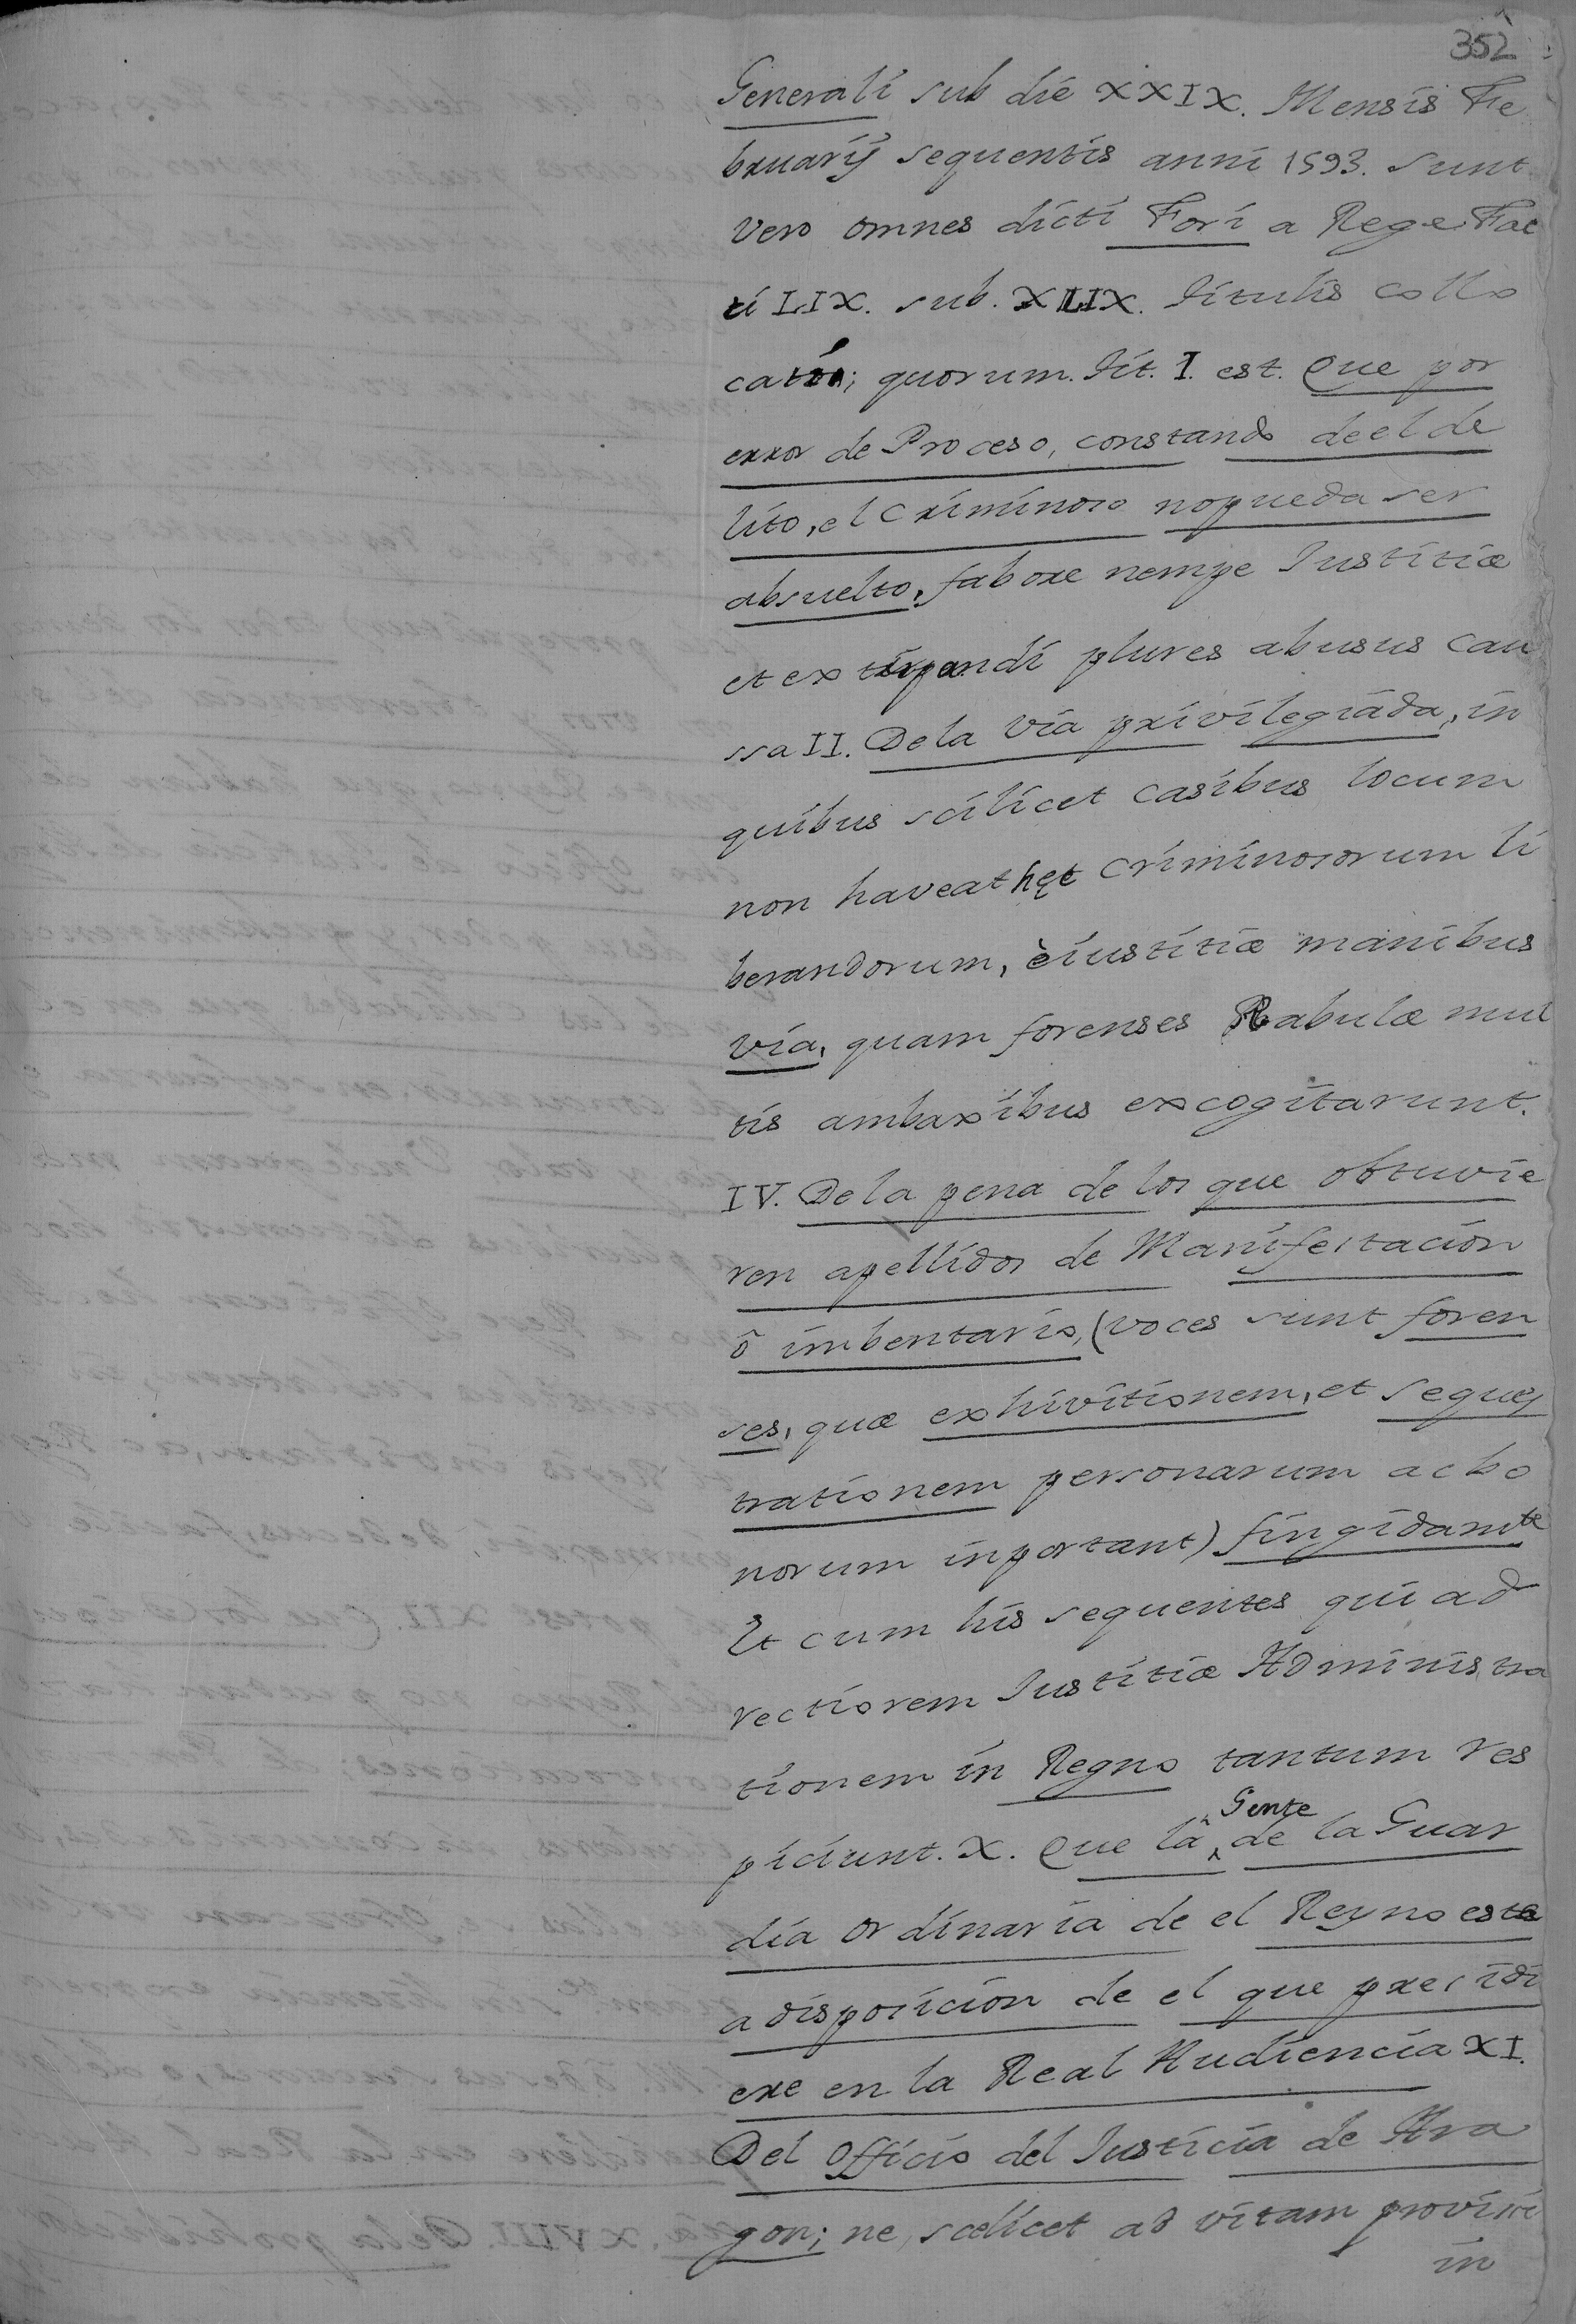 352
Generali sub die XXIX. Mensis Fe
bruarij sequentis anni 1593. sunt
vero omnes dicti Fori a Rege Fac
ti LIX. sub. XLIX. titulis collo
cati; quorum. tit. I. est. Que por
error de Proceso, constando de el de
lito, el Criminoso no pueda ser
absuelto, fabore nempe Iustitiæ
et extirpandi plures abusus cau
ssa II. De la via privilegiada, in
quibus scilicet casibus locum
non haveat hęc Criminosorum li
berandorum, è iustitiæ manibus
via, quam forenses Rabulæ mul
tis ambaxibus excogitarunt.
IV. De la pena de los que obtuvie
ren apellidos de Manifestacion
ô imbentario, (voces sunt foren
ses, quæ exhivitionem, et seques
trationem personarum ac bo
norum inportant) fingidamte
Et cum his sequentes qui ad
rectiorem Iustitiæ Administra
tionem in Regno tantum res
piciunt. X. Que la Gente de la Guar
dia ordinaria de el Reyno este
a disposicion de el que presidi
ere en la Real Audiencia XI.
Del Officio del Iusticia de Ara
gon; ne, scelicet ad vitam provissi
in